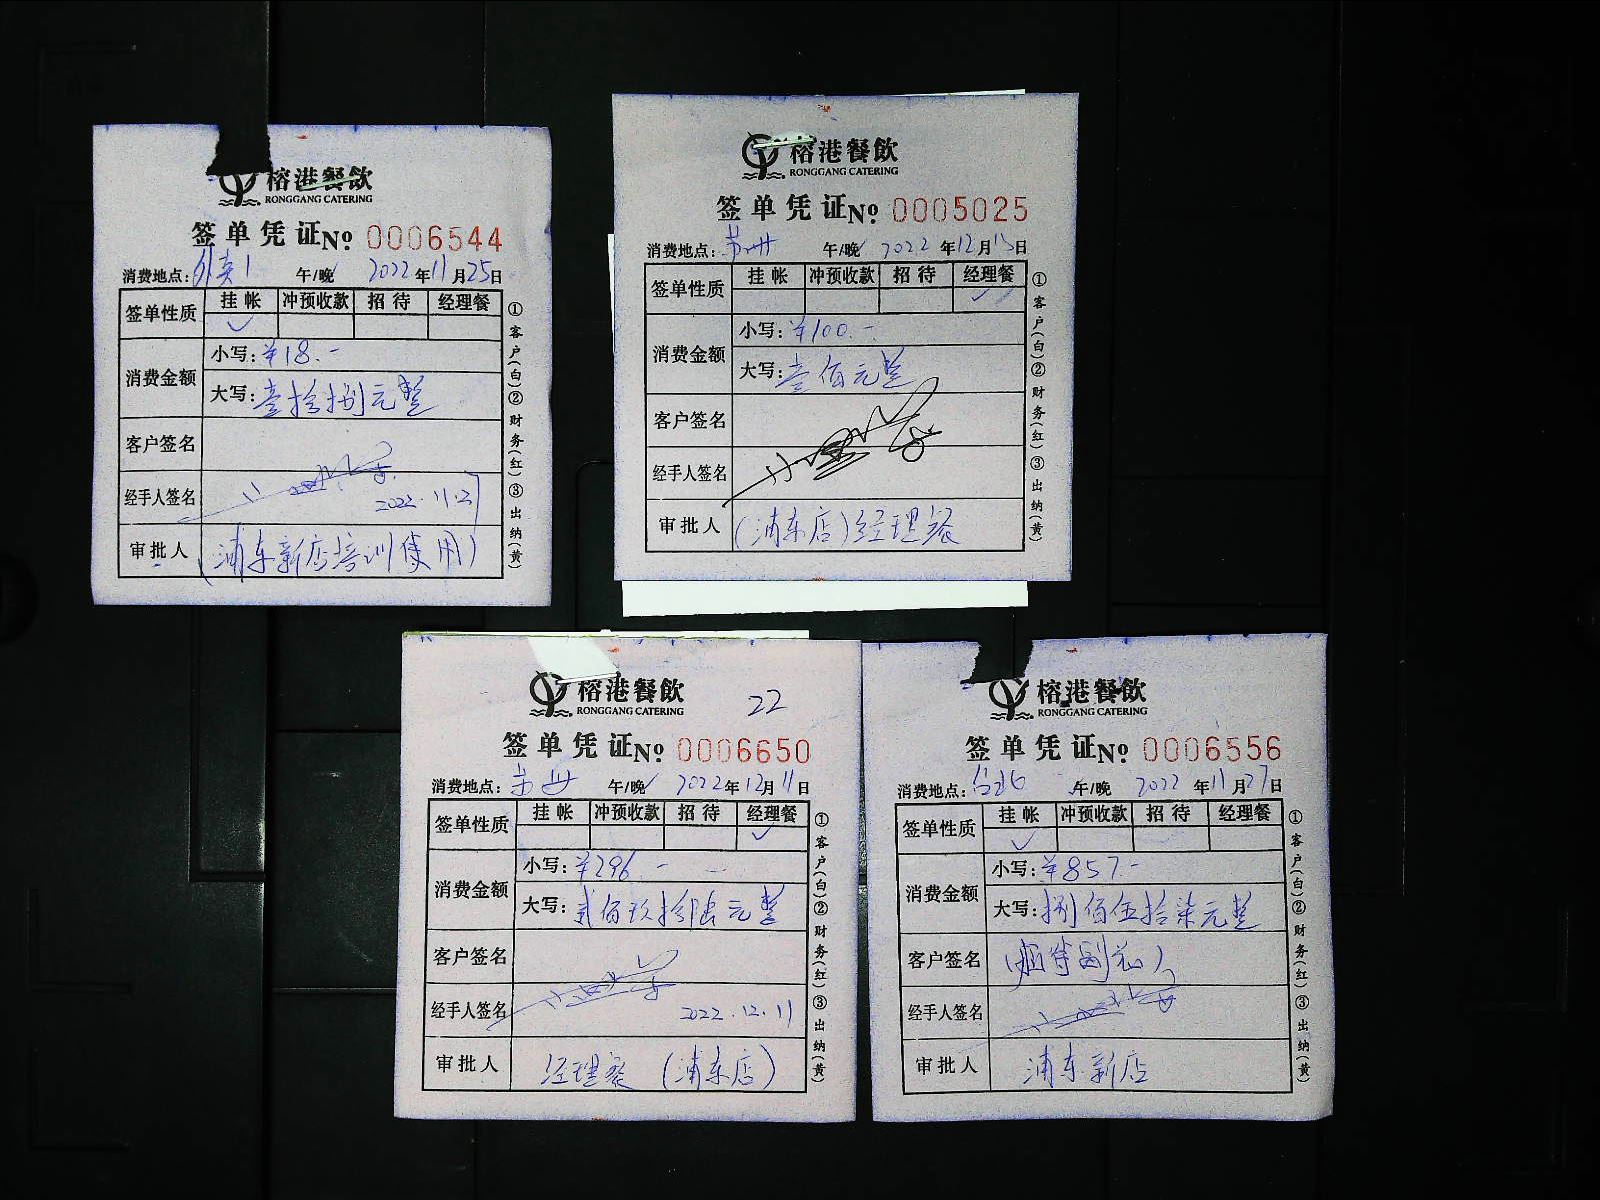 榕港餐飲
RONGGANG CATERING
签单凭证No 0006544
消费地点：外卖1 午/晚 2022年11月25日
签单性质 挂帐 冲预收款 招待 经理餐
✓
消费金额 小写：¥18.-
大写：壹拾捌元整
客户签名
经手人签名 2022.11.2
审批人 (浦东新店培训使用)
①客户(白)②财务(红)③出纳(黄)
榕港餐飲
RONGGANG CATERING
签单凭证No 0005025
消费地点：苏州 午/晚 2022年12月15日
签单性质 挂帐 冲预收款 招待 经理餐
✓
消费金额 小写：¥100.-
大写：壹佰元整
客户签名
经手人签名
审批人 (浦东店)经理餐
①客户(白)②财务(红)③出纳(黄)
榕港餐飲
RONGGANG CATERING
22
签单凭证No 0006650
消费地点： 午/晚 2022年12月11日
签单性质 挂帐 冲预收款 招待 经理餐
✓
消费金额 小写：¥296.-
大写：贰佰玖拾陆元整
客户签名
经手人签名 2022.12.11
审批人 经理餐 (浦东店)
①客户(白)②财务(红)③出纳(黄)
榕港餐飲
RONGGANG CATERING
签单凭证No 0006556
消费地点：台北 午/晚 2022年11月27日
签单性质 挂帐 冲预收款 招待 经理餐
✓
消费金额 小写：¥857.-
大写：捌佰伍拾柒元整
客户签名
经手人签名
审批人 浦东新店
①客户(白)②财务(红)③出纳(黄)